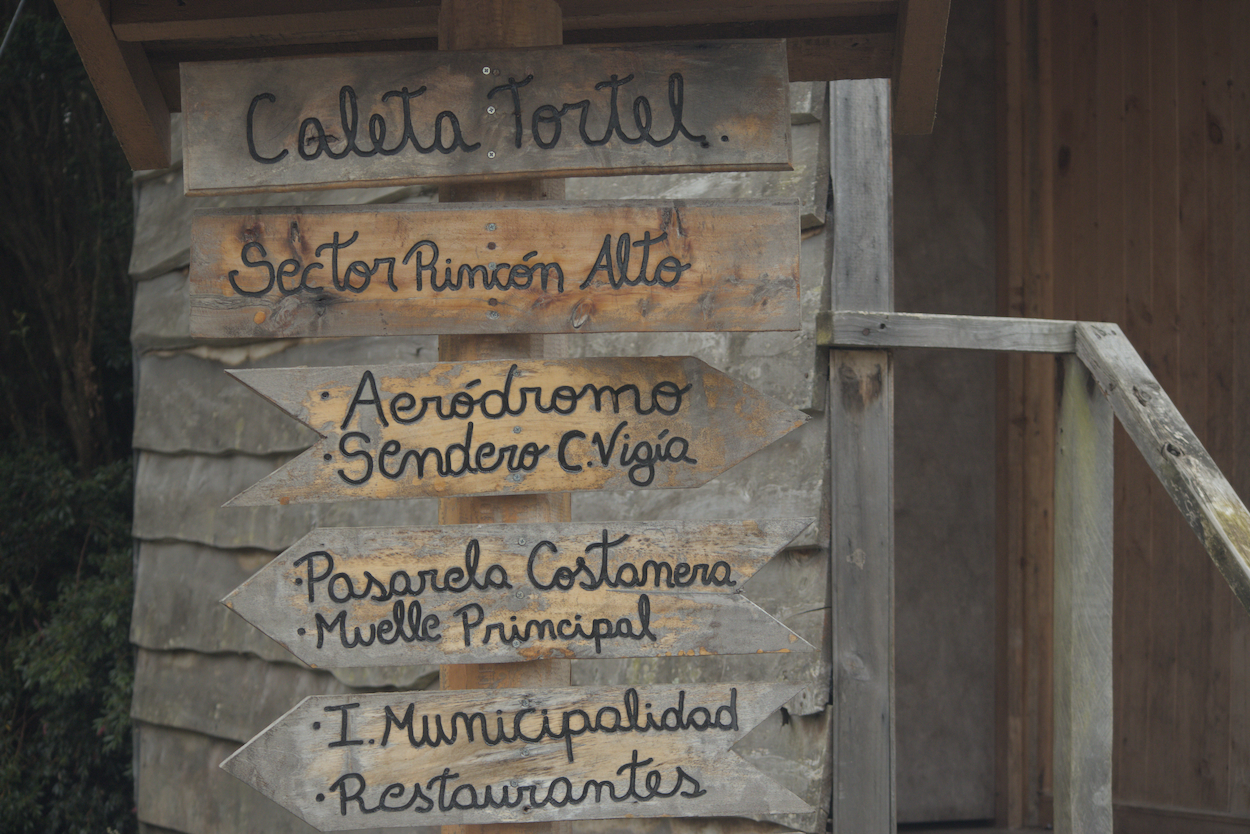 Caleta Tortel.
Sector Rincón Alto
· Aeródromo
· Sendero C. Vigía
· Pasarela Costanera
· Muelle Principal
· I. Municipalidad
· Restaurantes